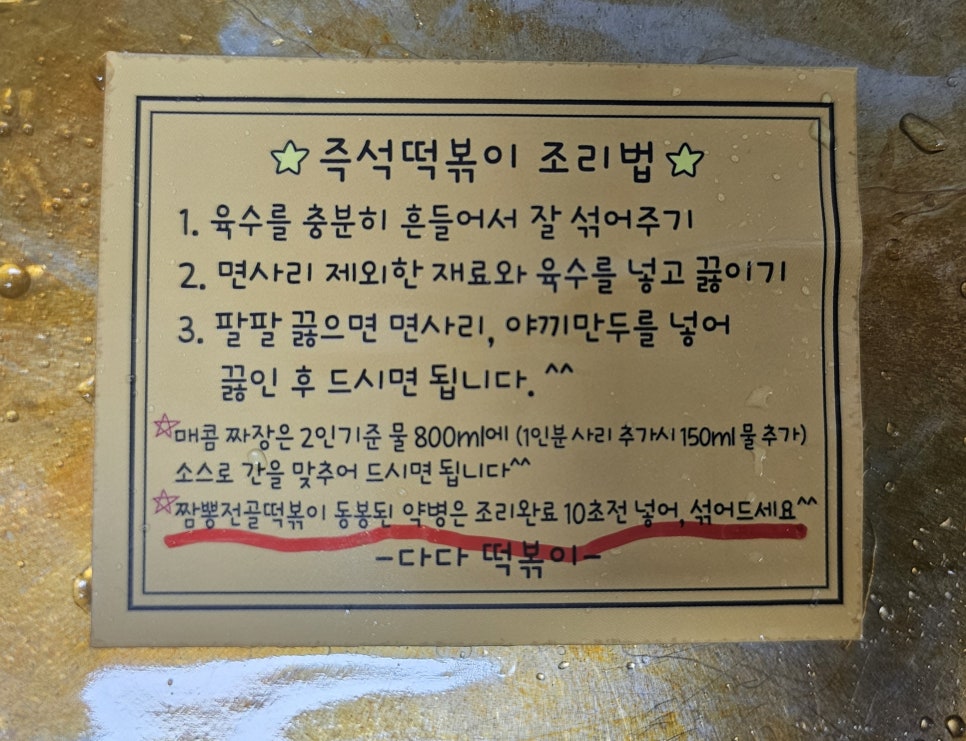 즉석떡볶이 조리법
1. 육수를 충분히 흔들어서 잘 섞어주기
2. 면사리 제외한 재료와 육수를 넣고 끓이기
3. 팔팔 끓으면 면사리, 야끼만두를 넣어
끓인 후 드시면 됩니다. ^^
매콤 짜장은 2인기준 물 800ml에 (1인분 사리 추가시 150ml 물 추가)
소스로 간을 맞추어 드시면 됩니다^^
짬뽕전골떡볶이 동봉된 약병은 조리완료 10초전 넣어, 섞어드세요^^
-다다 떡볶이-